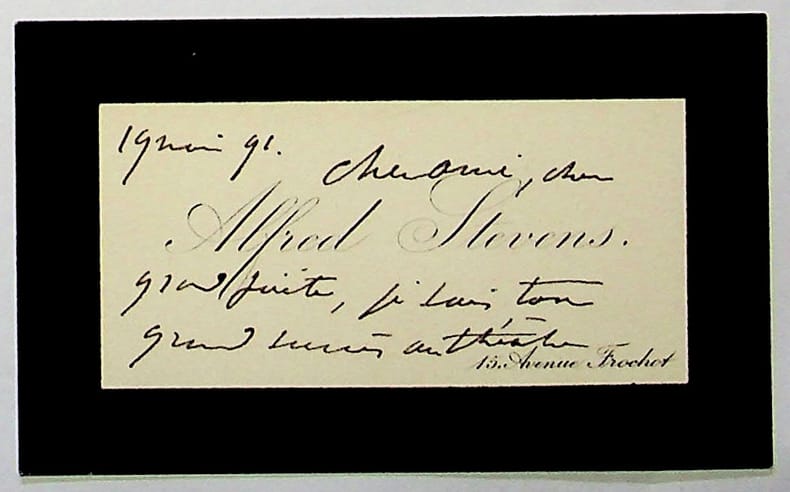 19 mai 91.
cher ami, cher
Alfred Stevens.
grand poète, je sais ton
grand succès au théâtre
15. Avenue Frochot